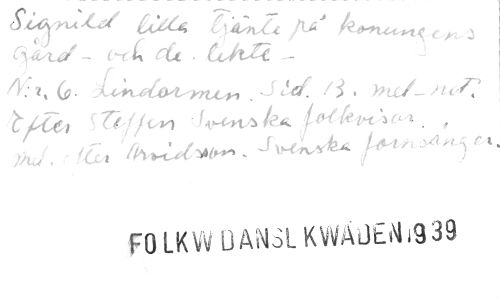 Signild lilla tjänte på konungens
gård - och de lekte -
N:r. 6. Lindormen. Sid. 13. med-not.
Efter Steffen Svenska folkvisor.
mel. efter Arvidsson. Svenska fornsånger.
FOLKWDANSLKWÄDEN1939